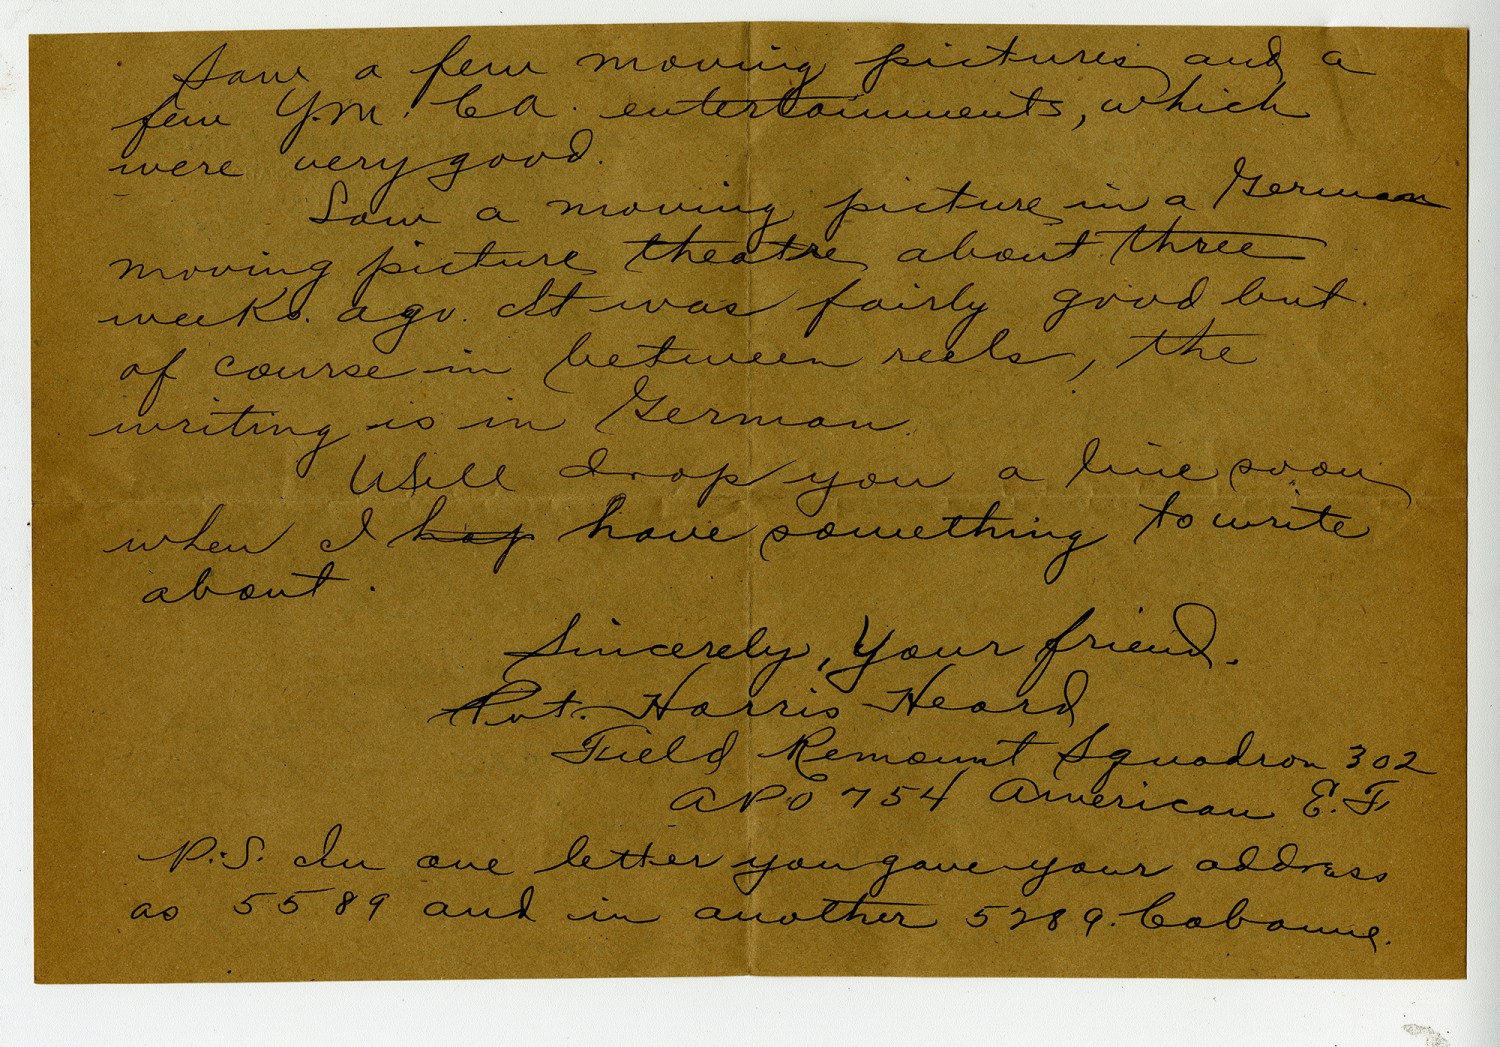 Saw a few moving pictures and a
few Y.M. C A. entertainments, which
were very good.
Saw a moving picture in a German
moving picture theatre about three
weeks. ago. It was fairly good but
of course in between reels, the
writing is in German.
Will drop you a line soon
when I have something to write
about.
Sincerely, Your friend.
Pvt. Harris Heard
Field Remount Squadron 302
APO 754 American E.F
P.S. In one letter you gave your address
as 5589 and in another 5289. Cabanne.